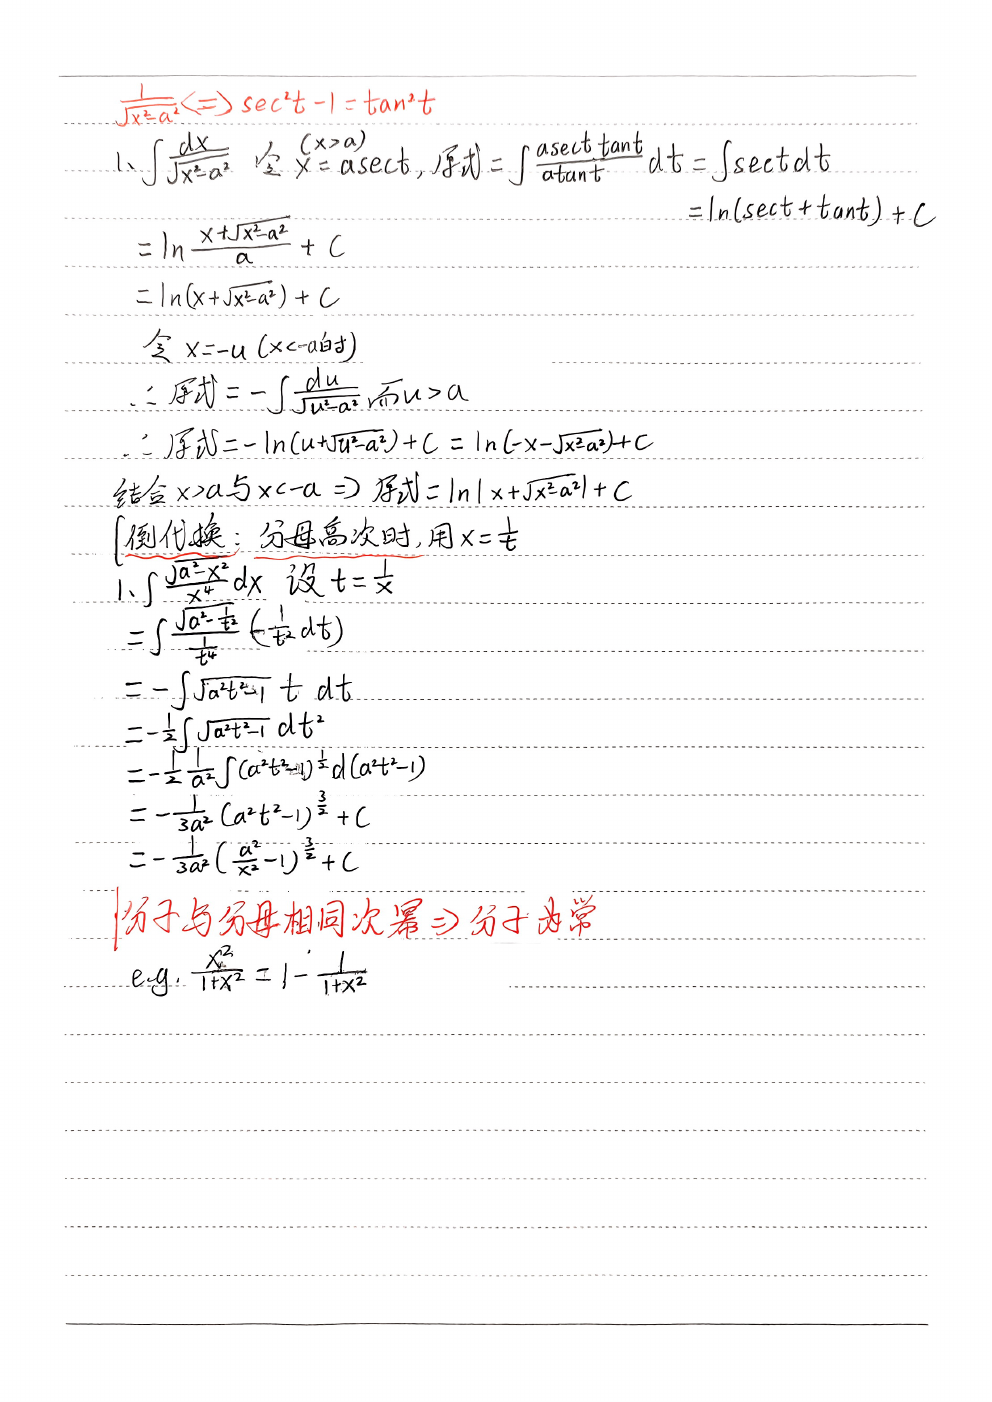 1/√(x²-a²) <=> sec²t - 1 = tan²t
1、∫ dx/√(x²-a²) 令 x = asect (x>a), 原式 = ∫ (asect tant)/(atant) dt = ∫ sect dt
= ln(sect + tant) + C
= ln (x+√(x²-a²))/a + C
= ln(x+√(x²-a²)) + C
令 x=-u (x<-a时)
∴ 原式 = -∫ du/√(u²-a²) 而u>a
∴ 原式 = -ln(u+√(u²-a²)) + C = ln(-x-√(x²-a²)) + C
结合 x>a 与 x<-a => 原式 = ln|x+√(x²-a²)| + C
倒代换: 分母高次时, 用 x = 1/t
1、∫ √(a²-x²)/x⁴ dx 设 t = 1/x
= ∫ √(a²-1/t²)/(1/t⁴) (-1/t² dt)
= -∫ √(a²t²-1) t dt
= -1/2 ∫ √(a²t²-1) dt²
= -1/2 1/a² ∫ (a²t²-1)^(1/2) d(a²t²-1)
= -1/(3a²) (a²t²-1)^(3/2) + C
= -1/(3a²) (a²/x² - 1)^(3/2) + C
分子与分母相同次幂 => 分子为常
e.g. x²/(1+x²) = 1 - 1/(1+x²)